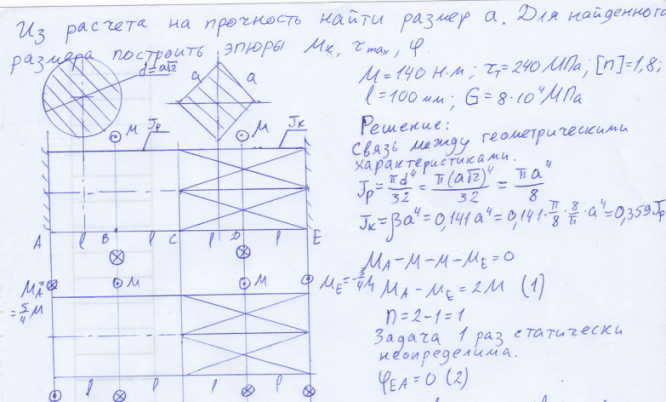 Из расчета на прочность найти размер a. Для найденного
размера построить эпюры Mк, τmax, φ.
d=a√2
a a
M = 140 Н·м; τт = 240 МПа; [n] = 1,8;
l = 100 мм; G = 8·10⁴ МПа
M Jp M Jк
Решение:
Связь между геометрическими
характеристиками.
Jp = πd⁴/32 = π(a√2)⁴/32 = πa⁴/8
Jк = βa⁴ = 0,141a⁴ = 0,141·π/8·8/π·a⁴ = 0,359Jp
A l B l C l D l E
MA - M - M - ME = 0
MA = 5/4 M M M ME = -3/4 M
MA - ME = 2M (1)
n = 2-1 = 1
Задача 1 раз статически
неопределима.
φEA = 0 (2)
l l l l